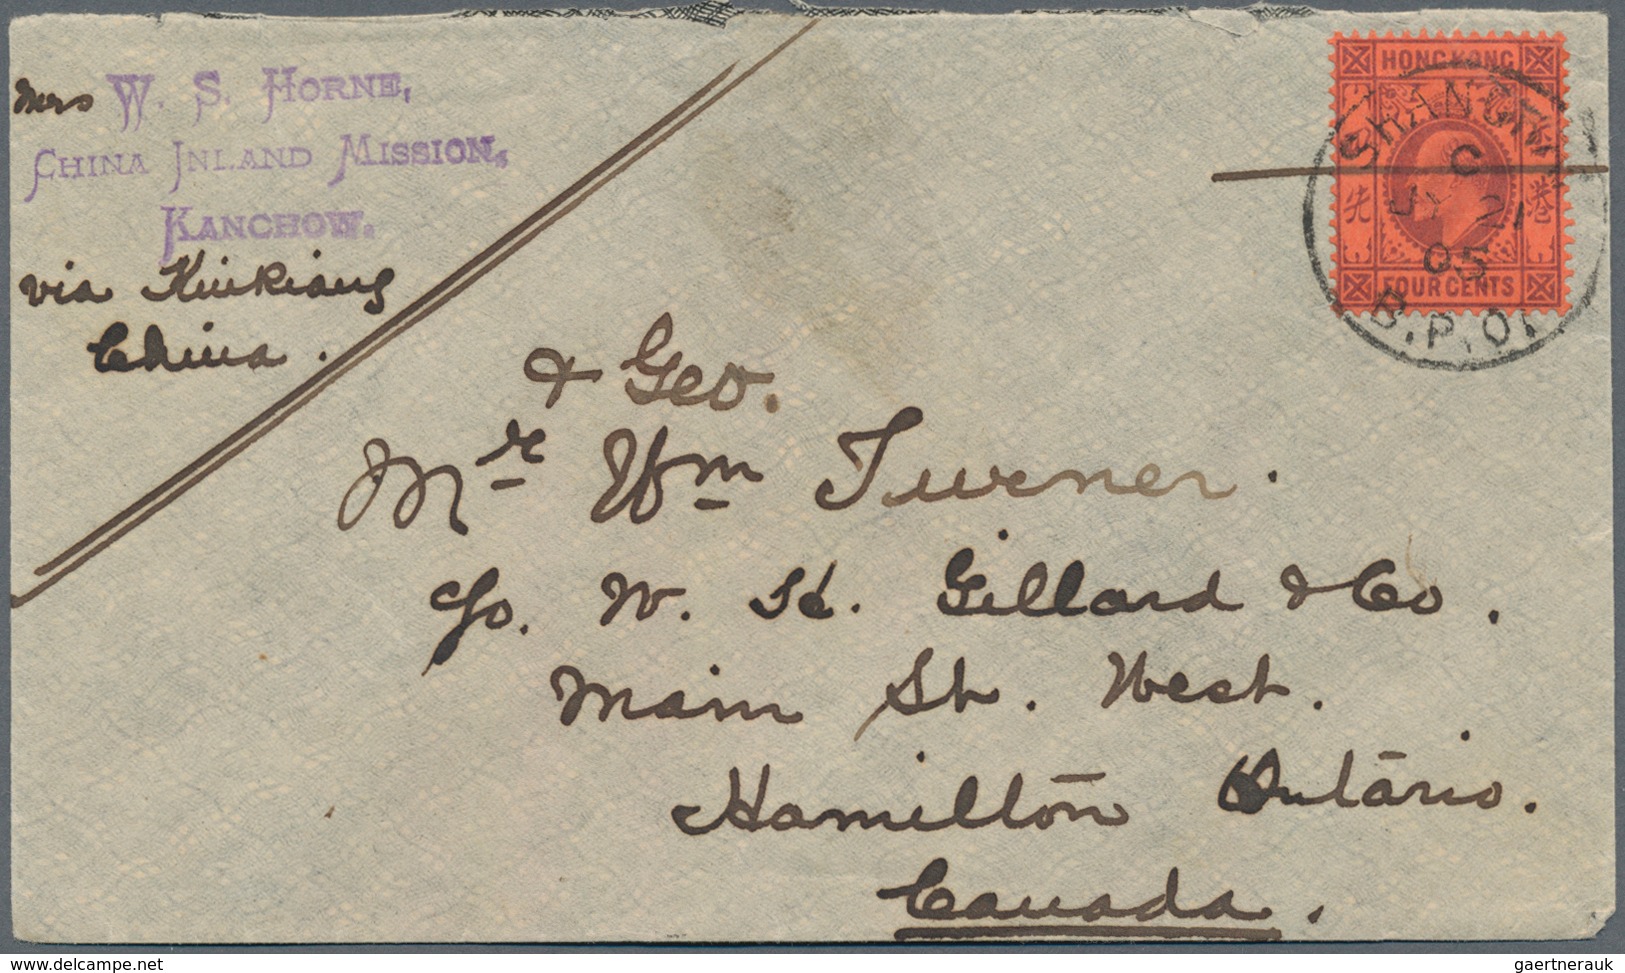 Mrs W. S. HORNE,
CHINA INLAND MISSION,
KANCHOW.
via Kiukiang
China.
HONG KONG
先 港
FOUR CENTS
SHANGH
C
JY 21
05
B.P.O.
& Geo.
Mr Wm Turner.
c/o. W. H. Gillard & Co.
Main St. West.
Hamilton Ontario.
Canada.
gaertnerauk